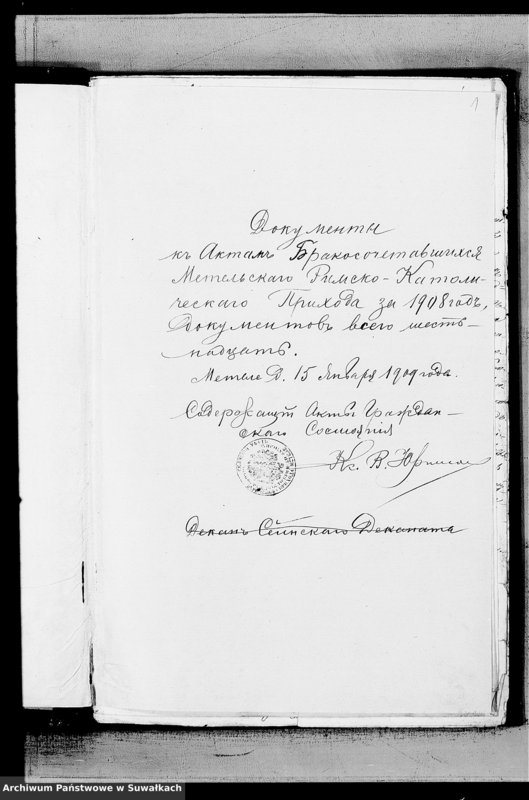 1
Документы
къ Актамъ Бракосочетавшихся
Метельскаго Римско-Католи-
ческаго Прихода за 1908 годъ,
Документовъ всего шесть-
надцать.
Метеле Д. 15 Января 1909 года.
Содержащiй Акты Граждан-
скаго Состоянiя
Кс. В.
Деканъ Сейнскаго Деканата
Archiwum Państwowe w Suwałkach